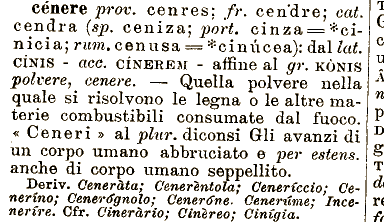 cénere prov. cenres; fr. cendre; cat.
cendra (sp. ceniza; port. cinza=*ci-
nicia; rum. cenusa=*cinúcea): dal lat.
CÍNIS - acc. CÍNEREM - affine al gr. KÒNIS
polvere, cenere. — Quella polvere nella
quale si risolvono le legna o le altre ma-
terie combustibili consumate dal fuoco.
« Ceneri » al plur. diconsi Gli avanzi di
un corpo umano abbruciato e per estens.
anche di corpo umano seppellito.
Deriv. Ceneràta; Cenerèntola; Cenerìccio; Ce-
nerìno; Cenerógnolo; Ceneróne. Cenerúme; Ince-
nerìre. Cfr. Cineràrio; Cinèreo; Cinìgia.